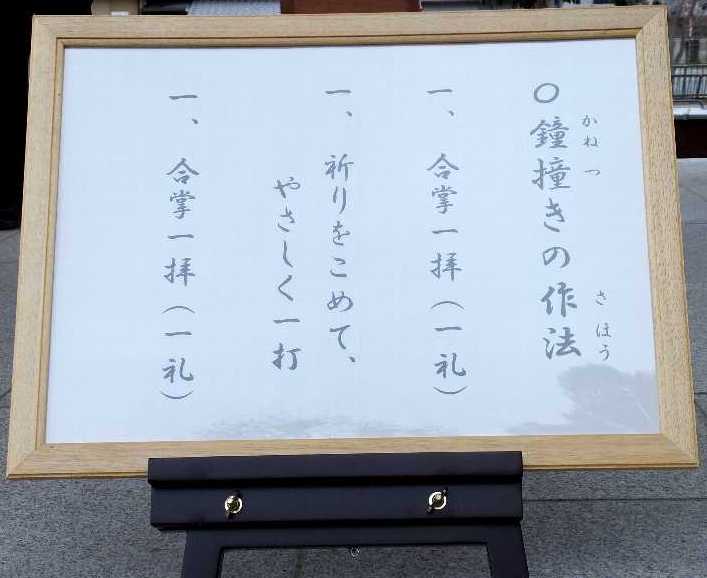 〇鐘撞きの作法
かねつ
さほう
一、合掌一拝（一礼）
一、祈りをこめて、
やさしく一打
一、合掌一拝（一礼）